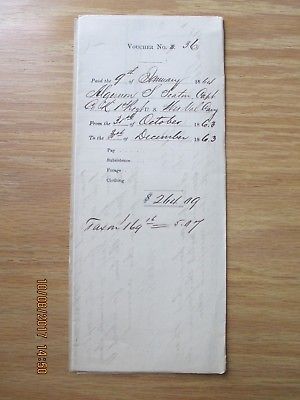 VOUCHER No. 8. 36
Paid the 9th of January 1864
Algernon S Seaton Capt
1st Regt
From the 31st of October 1863
To the 3rd of December 1863
Pay
Subsistence
Forage
Clothing
$ 264.09
Tax on 169 = 5.07
10/08/2017 14:50